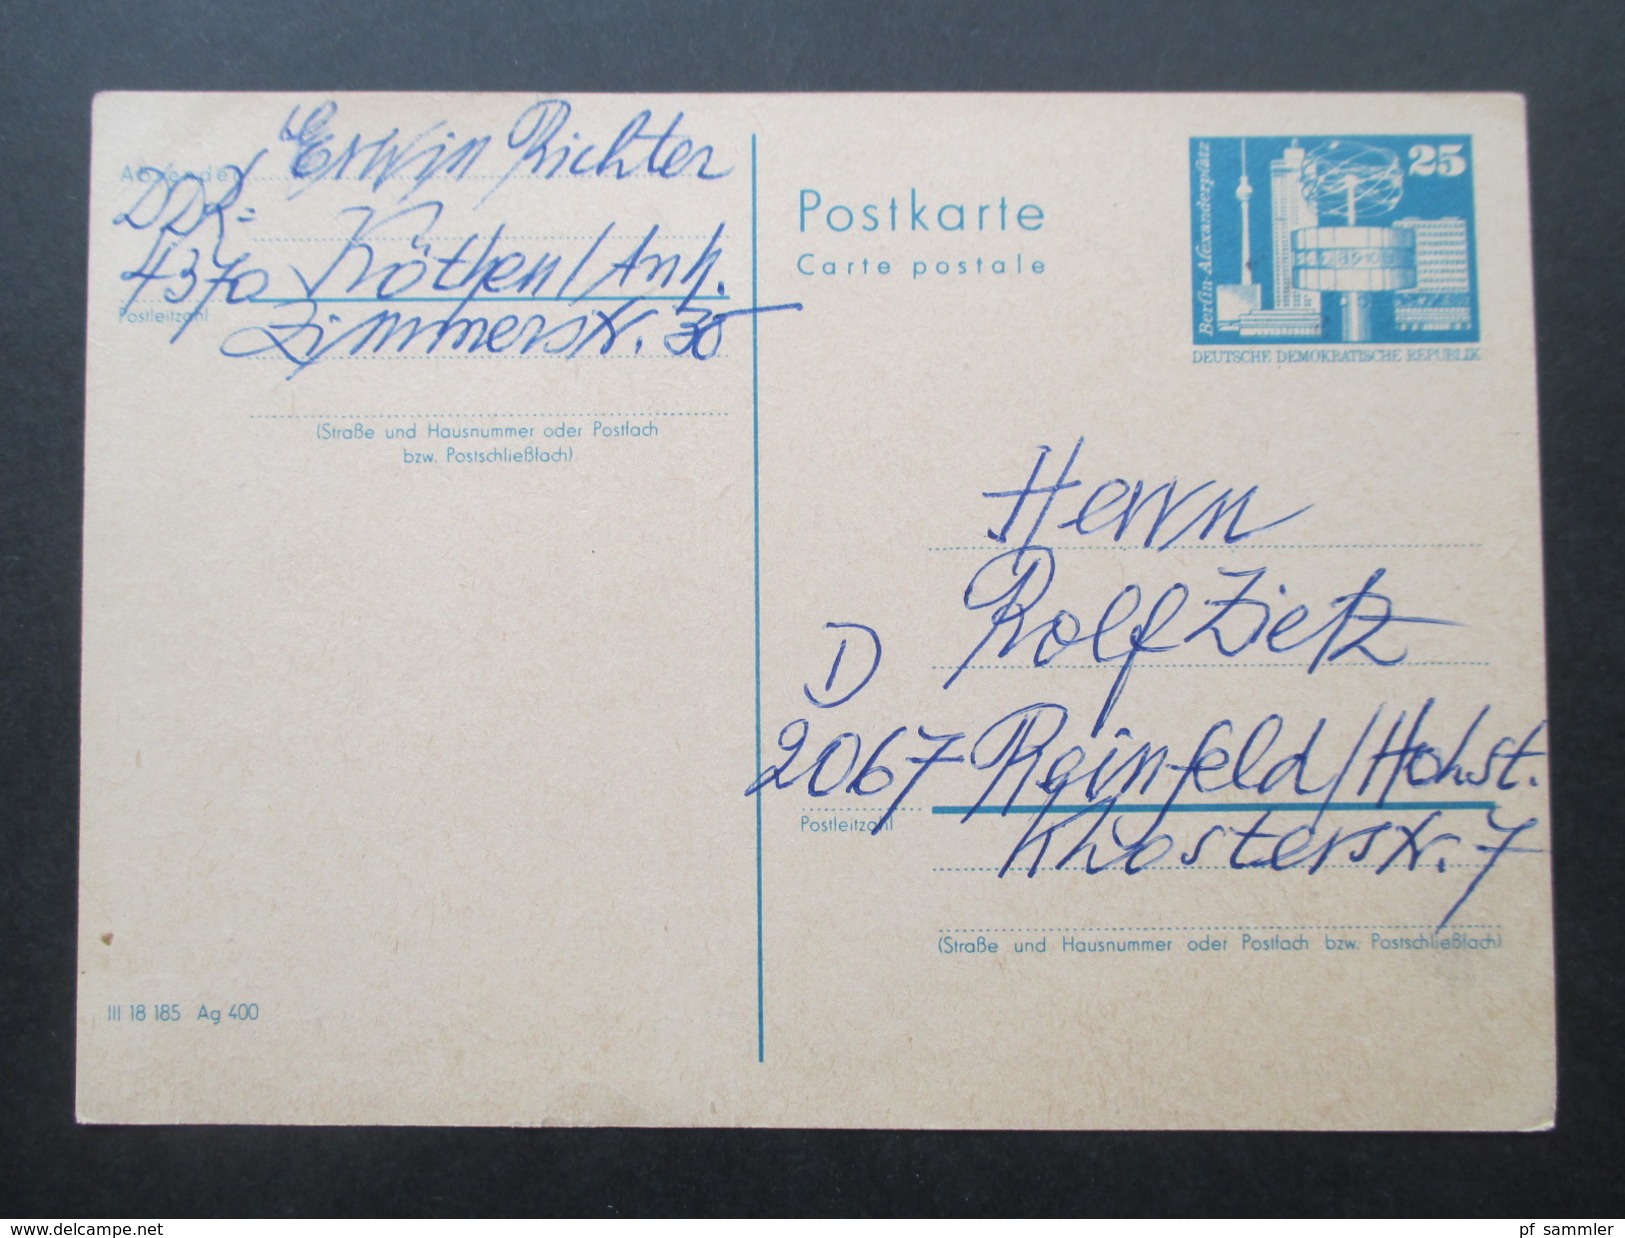 Erwin Richter
Absender
DDR-
4370 Köthen/Anh.
Postleitzahl
Zimmerstr. 30
(Straße und Hausnummer oder Postfach
bzw. Postschließfach)
III 18 185 Ag 400
Postkarte
Carte postale
25
Berlin-Alexanderplatz
DEUTSCHE DEMOKRATISCHE REPUBLIK
Herrn
Rolf Zietz
D
2067 Reinfeld/Holst.
Postleitzahl
Klosterstr. 7
(Straße und Hausnummer oder Postfach bzw. Postschließfach)
www.delcampe.net
pf sammler